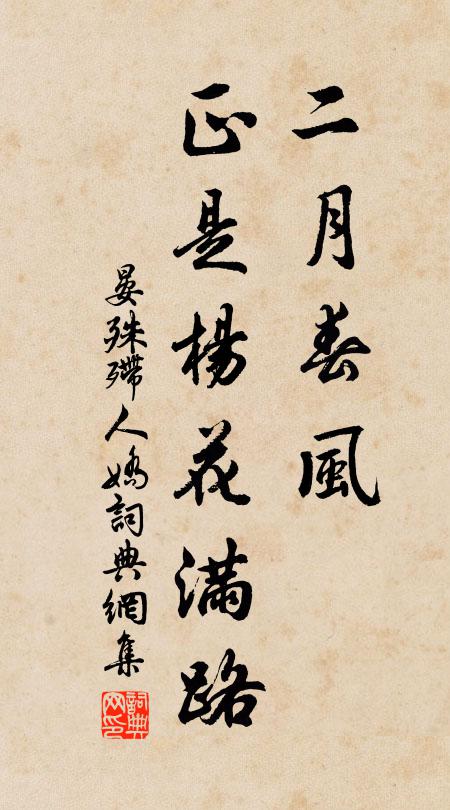 二月春風
正是楊花滿路
晏殊殢人嬌詞典網集
詞典网印